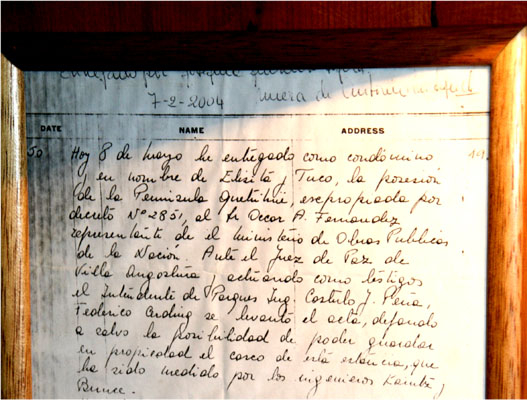 7-2-2004 nuera de
DATE NAME ADDRESS
50 Hoy 8 de mayo he entregado como condomino
y en nombre de Elisita y Tuco, la posesión
de la Peninsula Quetrihué, expropiada por
decreto Nº 2851, al Sr Oscar A. Fernandez
representante de el Ministerio de Obras Publicas
de la Nación. Ante el Juez de Paz de
Villa Angostura y actuando como testigos
el Intendente de Parques Ing. Castulo J. Peña,
Federico se levantó el acta, dejando
a salvo la posibilidad de poder guardar
en propiedad el casco de esta estancia, que
ha sido medido por los ingenieros y